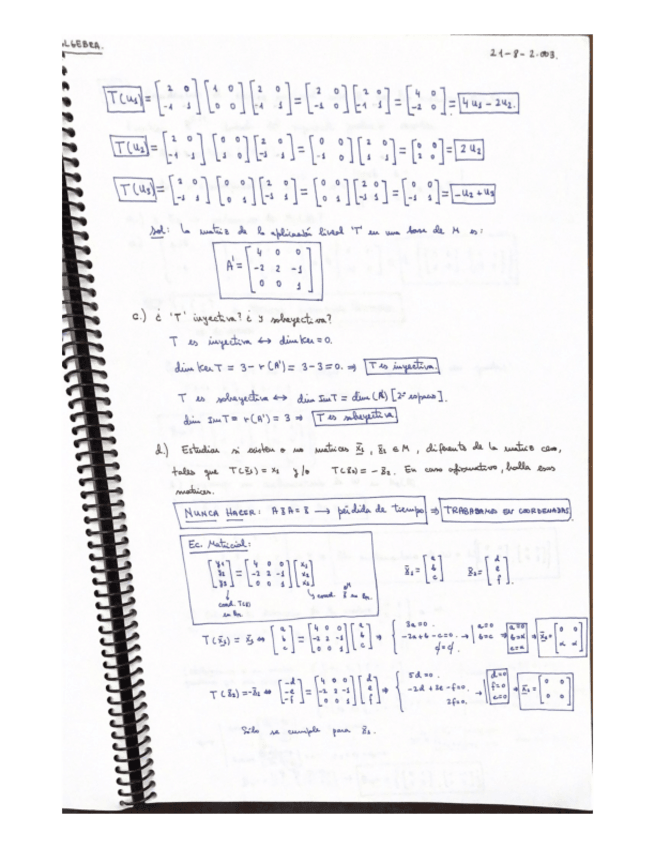 ALGEBRA.
21-8-2.003.
T(u₁) = [2 0; -1 1] [1 0; 0 0] [2 0; -1 1] = [2 0; -1 0] [2 0; -1 1] = [4 0; -2 0] = 4u₁ - 2u₂.
T(u₂) = [2 0; -1 1] [0 0; 1 0] [2 0; -1 1] = [0 0; 1 0] [2 0; -1 1] = [0 0; 2 0] = 2u₂
T(u₃) = [2 0; -1 1] [0 0; 0 1] [2 0; -1 1] = [0 0; 0 1] [2 0; -1 1] = [0 0; -1 1] = -u₂ + u₃
Sol: La matriz de la aplicación lineal 'T' en una base de M es:
A' = [4 0 0; -2 2 -1; 0 0 1]
c.) ¿ 'T' inyectiva? ¿ y sobreyectiva?
T es inyectiva ↔ dim Ker = 0.
dim Ker T = 3 - r(A') = 3 - 3 = 0. ⇒ T es inyectiva.
T es sobreyectiva ↔ dim Im T = dim (M) [2º espacio].
dim Im T = r(A') = 3 ⇒ T es sobreyectiva
d.) Estudiar si existen o no matrices x̄₁, x̄₂ ∈ M, diferente de la matriz cero,
tales que T(x̄₁) = x₁ y/o T(x̄₂) = -x̄₂. En caso afirmativo, halla esas
matrices.
NUNCA HACER: AXA = X → pérdida de tiempo ⇒ TRABAJAMOS EN COORDENADAS.
Ec. Matricial:
[y₁; y₂; y₃] = [4 0 0; -2 2 -1; 0 0 1] [x₁; x₂; x₃]
x̄₁ = [a; b; c] x̄₂ = [d; e; f].
T(x̄₁) = x̄₁ ⇔ [a; b; c] = [4 0 0; -2 2 -1; 0 0 1] [a; b; c] ⇒ { 3a=0. -2a+b-c=0. c=c. → | a=0 b=c ⇒ a=0 b=α c=α ⇒ x̄₁ = [0 0; α α]
T(x̄₂) = -x̄₂ ⇔ [-d; -e; -f] = [4 0 0; -2 2 -1; 0 0 1] [d; e; f] ⇒ { 5d=0. -2d+3e-f=0. 2f=0. → | d=0 f=0 e=0 ⇒ x̄₂ = [0 0; 0 0]
Sólo se cumple para x̄₁.